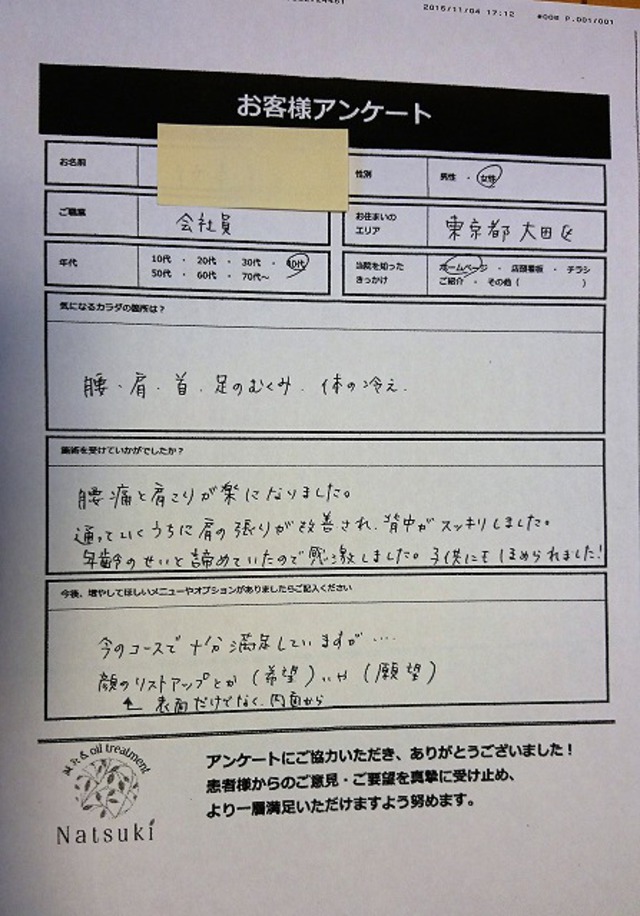 2015/11/04 17:12 P.001/001
お客様アンケート
お名前
性別 男性 ・ 女性
ご職業 会社員
お住まいの
エリア 東京都大田区
年代 10代 ・ 20代 ・ 30代 ・ 40代
50代 ・ 60代 ・ 70代～
当院を知った
きっかけ ホームページ ・ 店頭看板 ・ チラシ
ご紹介 ・ その他（ ）
気になるカラダの箇所は？
腰．肩．首．足のむくみ．体の冷え．
施術を受けていかがでしたか？
腰痛と肩こりが楽になりました。
通っていくうちに肩の張りが改善され、背中がスッキリしました。
年齢のせいと諦めていたので感激しました。子供にもほめられました！
今後、増やしてほしいメニューやオプションがありましたらご記入ください
今のコースで十分満足していますが‥‥
顔のリストアップとか（希望）いや（願望）
表面だけでなく、内面から
アンケートにご協力いただき、ありがとうございました！
患者様からのご意見・ご要望を真摯に受け止め、
より一層満足いただけますよう努めます。
& oil treatment
Natsuki